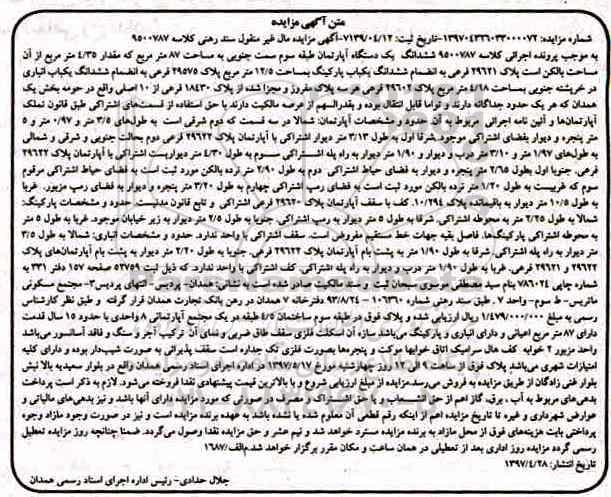 متن آگهی مزایده
شماره مزایده: ۱۳۹۷۰۴۳۲۶۰۳۳۰۰۰۰۷۲-تاریخ ثبت: ۷۱۳۹/۰۴/۱۲-آگهی مزایده مال غیر منقول سند رهنی کلاسه ۹۵۰۰۷۸۷
به موجب پرونده اجرائی کلاسه ۹۵۰۰۷۸۷ ششدانگ یک دستگاه آپارتمان طبقه سوم سمت جنوبی به مساحت ۸۷ متر مربع که مقدار ۴/۳۵ متر مربع از آن
مساحت بالکن است پلاک ۲۹۶۲۱ فرعی به انضمام ششدانگ یکباب پارکینگ بمساحت ۱۲/۵ متر مربع پلاک ۲۹۵۷۵ فرعی به انضمام ششدانگ یکباب انباری
در خرپشته جنوبی بمساحت ۴/۱۸ متر مربع پلاک ۲۹۶۰۲ فرعی عرصه پلاک مفروز و مجزا شده از پلاک ۱۸۴۳۰ فرعی از ۱۰ اصلی واقع در حومه بخش یک
همدان که هر یک حدود جداگانه دارند و تواما قابل انتقال بوده و بقدرالسهم از عرصه مالکیت دارند با حق استفاده از قسمت‌های اشتراکی طبق قانون تملک
آپارتمان‌ها و آئین نامه اجرائی مربوط به آن حدود و مشخصات آپارتمان: شمالا در سه قسمت که دوم شرقی است به طول‌های ۳/۵ متر و ۰/۹۷ متر و ۵
متر پنجره و دیوار بفضای اشتراکی موجود شرقا اول به طول ۳/۱۳ متر دیوار اشتراکی با آپارتمان پلاک ۲۹۶۲۲ فرعی دوم بحالت جنوبی و شرقی و شمالی
به طول‌های ۱/۹۷ متر و ۳/۱۰ متر درب و دیوار و ۱/۹۰ متر دیوار به راه پله اشتراکی سوم به طول ۴/۳۰ متر دیواریست اشتراکی با آپارتمان پلاک ۲۹۶۲۲
فرعی، جنوبا اول بطول ۲/۶۵ متر پنجره و دیوار به فضای حیاط اشتراکی دوم به طول ۲/۹۰ متر تردد بالکن مورد ثبت است به فضای حیاط اشتراکی مرقوم
سوم که غربیست به طول ۱/۲۰ متر نرده بالکن مورد ثبت است به فضای رمپ اشتراکی چهارم به طول ۳/۲۰ متر پنجره و دیوار به فضای رمپ مزبور. غربا
به طول ۱۰/۵ متر دیوار به باقیمانده پلاک ۱۰/۲۹۴. کف با سقف آپارتمان پلاک ۲۹۶۲۰ فرعی اشتراکی و تابع قانون مدنیست. حدود و مشخصات پارکینگ:
شمالا به طول ۲/۲۵ متر به محوطه اشتراکی. شرقا به طول ۵ متر دیوار به رمپ اشتراکی. جنوبا به طول ۲/۵ متر دیوار به زیر خیابان موجود. غربا به طول ۵ متر
به محوطه اشتراکی پارکینگ‌ها. فاصل بقیه جهات خط مستقیم مفروض است. سقف اشتراکی با واحد ندارد. حدود و مشخصات انباری: شمالا به طول ۳/۵
متر دیوار به راه پله اشتراکی. شرقا به طول ۱/۹۰ متر به پشت بام آپارتمان پلاک ۲۹۶۲۲ فرعی. جنوبا به طول ۲/۲۰ متر دیوار به پشت بام آپارتمان‌های پلاک
۲۹۶۲۲ و ۲۹۶۲۱ فرعی. غربا به طول ۱/۹۰ متر درب و دیوار به راه پله اشتراکی. کف اشتراکی با واحد ندارد. که ذیل ثبت ۵۲۷۵۹ صفحه ۱۵۷ دفتر ۳۳۱ به
شماره چاپی ۷۸۶۰۲۴ بنام سید مصطفی موسوی سبحان ثبت و سند مالکیت صادر شده است به نشانی: همدان- پردیس- انتهای پردیس۳- مجتمع مسکونی
ماتریس- ط سوم- واحد ۷ . طبق سند رهنی شماره ۱۰۶۳۶۰ - ۹۳/۸/۲۴ دفترخانه ۷ همدان در رهن بانک تجارت همدان قرار گرفته و طبق نظر کارشناس
رسمی به مبلغ ۱/۴۷۹/۰۰۰/۰۰۰ ریال ارزیابی شده و پلاک فوق در طبقه سوم ساختمان ۴/۵ طبقه در یک مجتمع آپارتمانی ۸ واحدی با حدود ۱۵ سال قدمت
دارای ۸۷ متر مربع اعیانی و دارای انباری و پارکینگ می‌باشد سازه آن اسکلت فلزی سقف طاق ضربی و نمای آن ترکیب آجر و سنگ و فاقد آسانسور می‌باشد
واحد مزبور ۲ خوابه کف هال سرامیک اتاق خوابها موکت و پنجره‌ها بصورت فلزی تک جداره است سقف پذیرائی به صورت شیب‌دار بوده و دارای کلیه
امتیازات شهری می‌باشد پلاک فوق از ساعت ۹ الی ۱۲ روز چهارشنبه مورخ ۱۳۹۷/۰۵/۱۷ در اداره اجرای اسناد رسمی همدان واقع در بلوار سعیدیه بالا نبش
بلوار غنی زادگان از طریق مزایده به فروش می‌رسد.مزایده از مبلغ ارزیابی شروع و با بالاترین قیمت پیشنهادی نقدا فروخته می‌شود. لازم به ذکر است پرداخت
بدهی‌های مربوط به آب ، برق، گاز اعم از حق انشعاب و یا حق اشتراک و مصرف در صورتی که مورد مزایده دارای آنها باشد و نیز بدهی‌های مالیاتی و
عوارض شهرداری و غیره تا تاریخ مزایده اعم از اینکه رقم قطعی آن معلوم شده یا نشده باشد به عهده برنده مزایده است و نیز در صورت وجود مازاد وجوه
پرداختی بابت هزینه‌های فوق از محل مازاد به برنده مزایده مسترد خواهد شد و نیم عشر و حق مزایده نقدا وصول می‌گردد. ضمنا چنانچه روز مزایده تعطیل
رسمی گردد مزایده روز اداری بعد از تعطیلی در همان ساعت و مکان مقرر برگزار خواهد شد.م‌الف/۱۶۸۷
تاریخ انتشار: ۱۳۹۷/۴/۲۸
جلال حدادی- رئیس اداره اجرای اسناد رسمی همدان